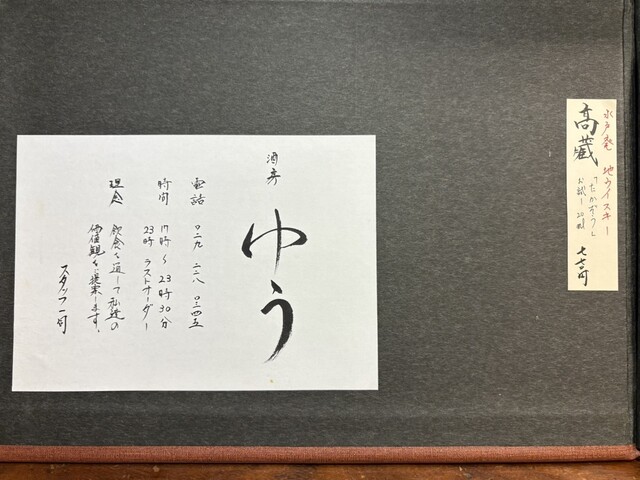 水戸発 地ウイスキー
高蔵
「たかぞう」
お試し 20ml 七七〇円
酒房
ゆう
電話 〇二九 二二八 〇二四五
時間 17時〜23時30分
23時 ラストオーダー
理念 飲食を通して私達の
価値観をご提案します。
スタッフ一同